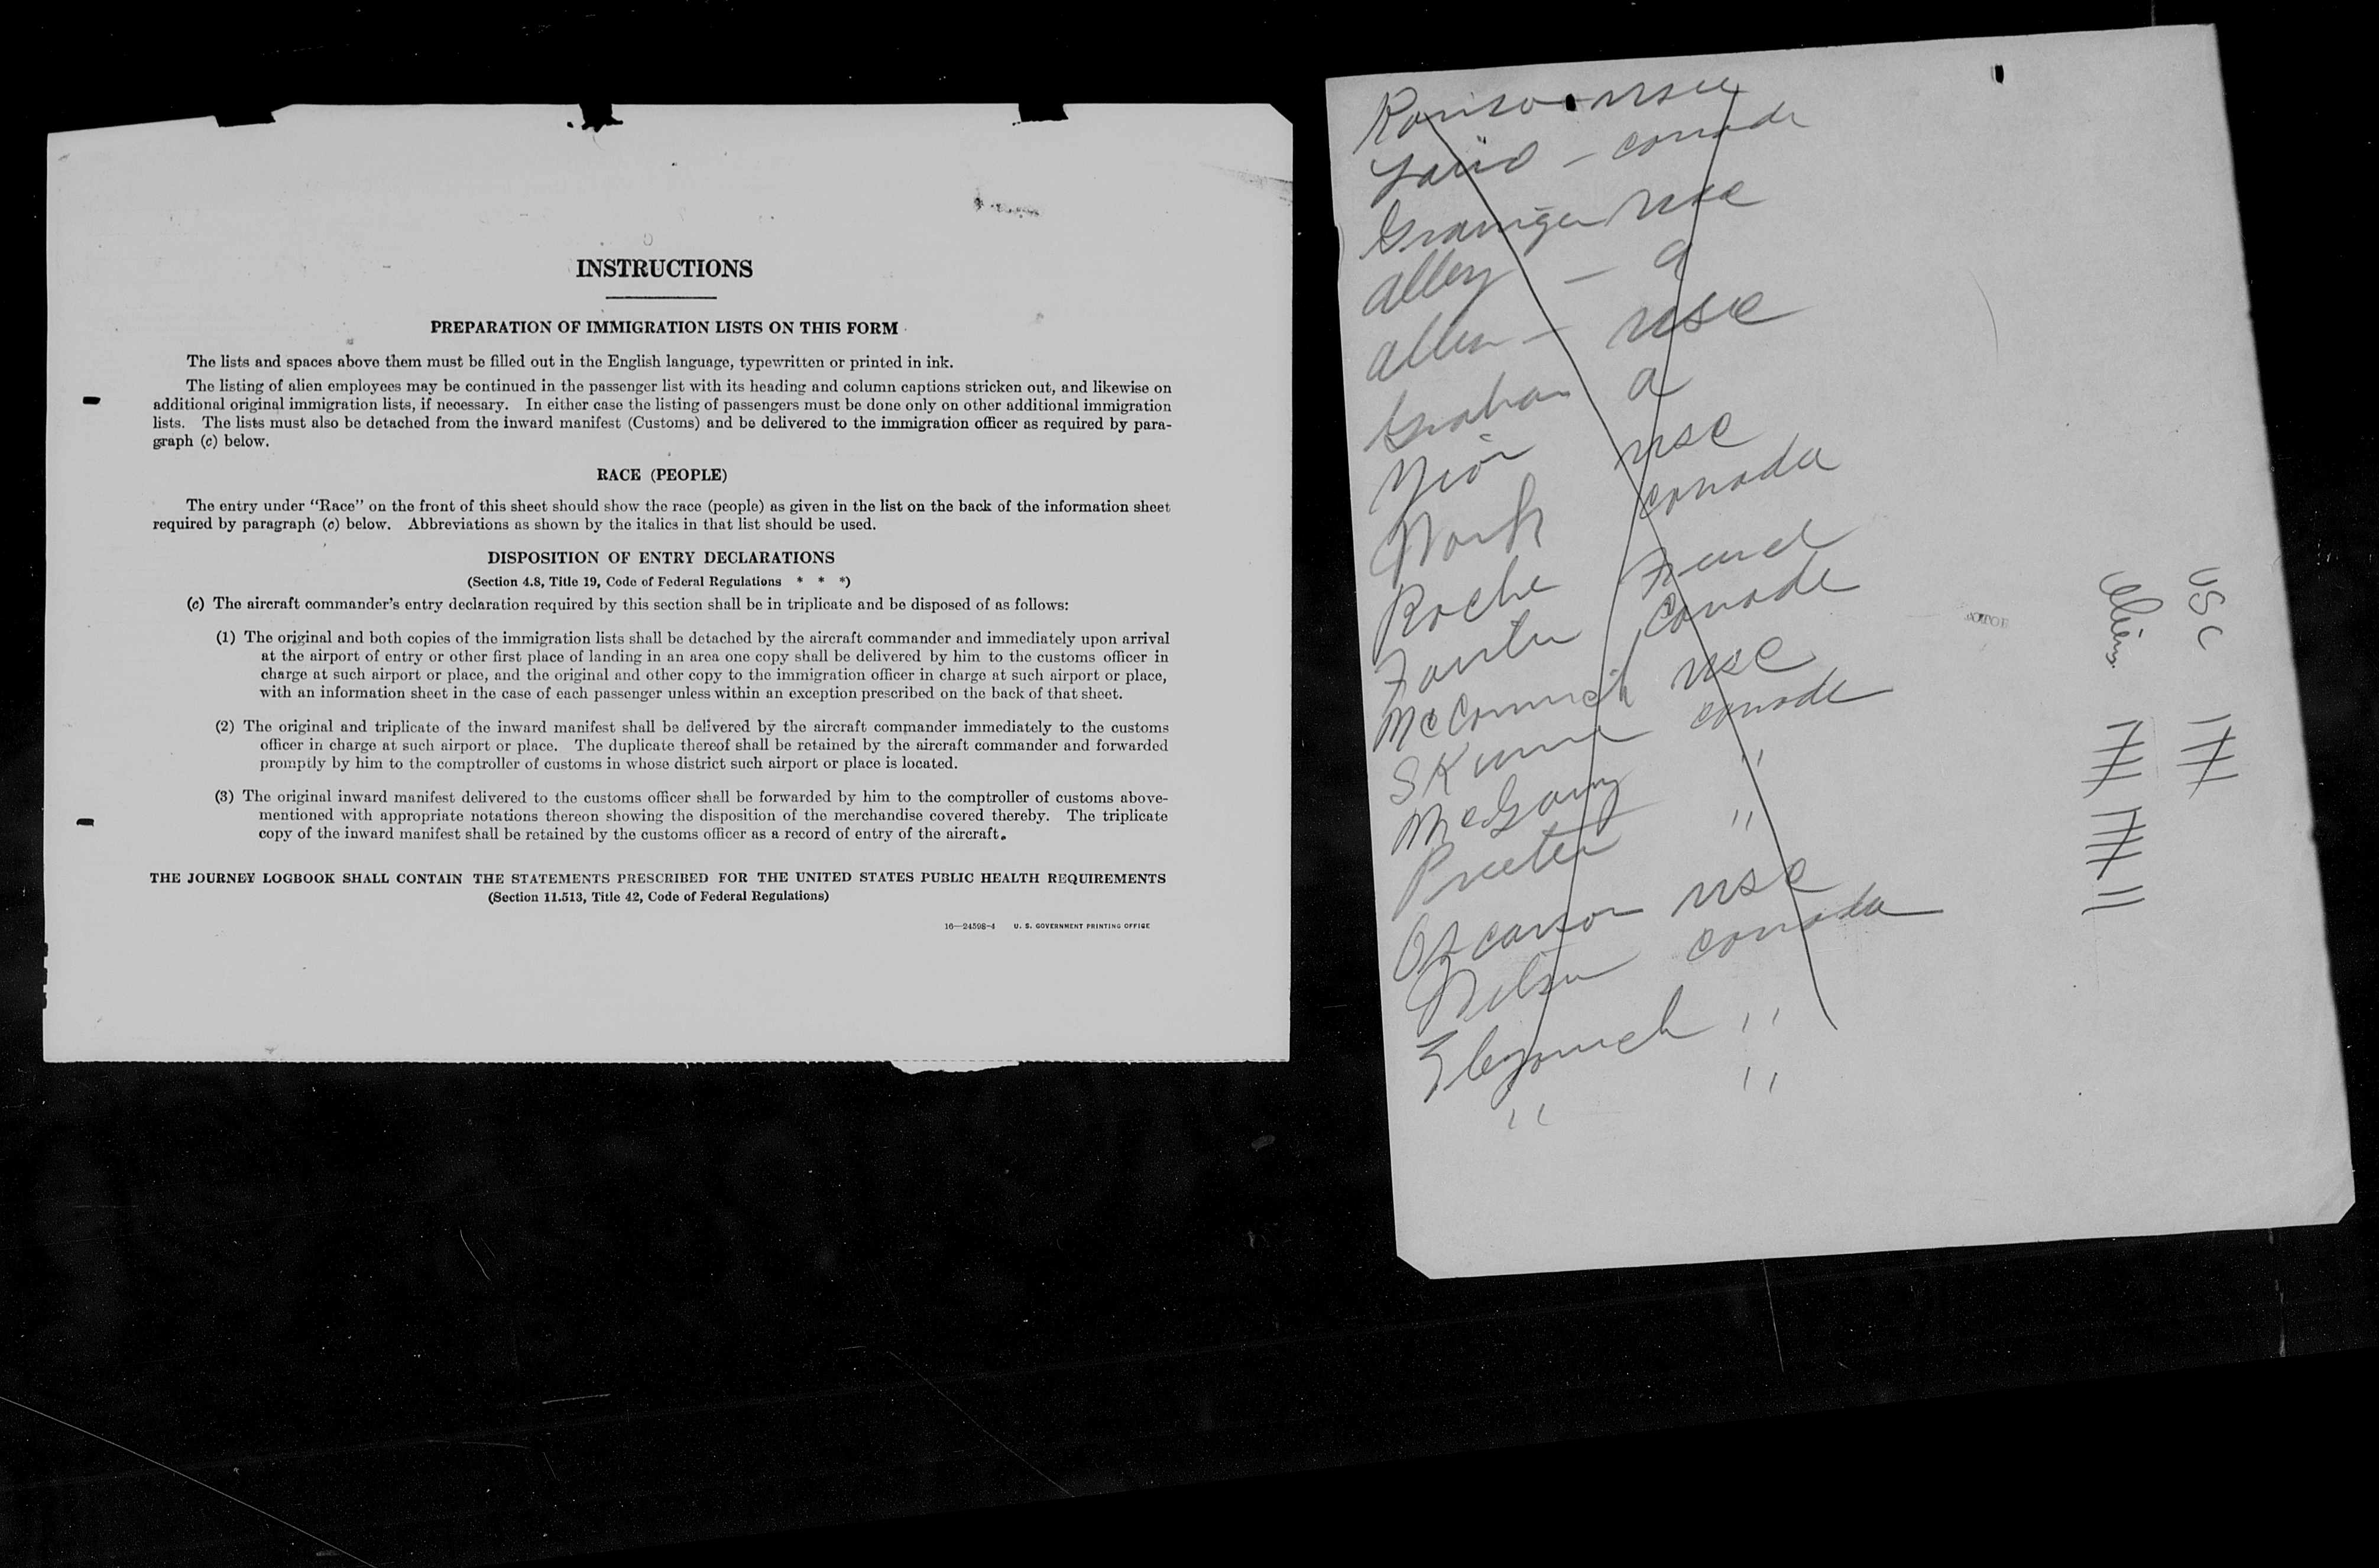 INSTRUCTIONS
PREPARATION OF IMMIGRATION LISTS ON THIS FORM
The lists and spaces above them must be filled out in the English language, typewritten or printed in ink.
The listing of alien employees may be continued in the passenger list with its heading and column captions stricken out, and likewise on
additional original immigration lists, if necessary. In either case the listing of passengers must be done only on other additional immigration
lists. The lists must also be detached from the inward manifest (Customs) and be delivered to the immigration officer as required by para-
graph (c) below.
RACE (PEOPLE)
The entry under "Race" on the front of this sheet should show the race (people) as given in the list on the back of the information sheet
required by paragraph (c) below. Abbreviations as shown by the italics in that list should be used.
DISPOSITION OF ENTRY DECLARATIONS
(Section 4.8, Title 19, Code of Federal Regulations * * *)
(c) The aircraft commander's entry declaration required by this section shall be in triplicate and be disposed of as follows:
(1) The original and both copies of the immigration lists shall be detached by the aircraft commander and immediately upon arrival
at the airport of entry or other first place of landing in an area one copy shall be delivered by him to the customs officer in
charge at such airport or place, and the original and other copy to the immigration officer in charge at such airport or place,
with an information sheet in the case of each passenger unless within an exception prescribed on the back of that sheet.
(2) The original and triplicate of the inward manifest shall be delivered by the aircraft commander immediately to the customs
officer in charge at such airport or place. The duplicate thereof shall be retained by the aircraft commander and forwarded
promptly by him to the comptroller of customs in whose district such airport or place is located.
(3) The original inward manifest delivered to the customs officer shall be forwarded by him to the comptroller of customs above-
mentioned with appropriate notations thereon showing the disposition of the merchandise covered thereby. The triplicate
copy of the inward manifest shall be retained by the customs officer as a record of entry of the aircraft.
THE JOURNEY LOGBOOK SHALL CONTAIN THE STATEMENTS PRESCRIBED FOR THE UNITED STATES PUBLIC HEALTH REQUIREMENTS
(Section 11.513, Title 42, Code of Federal Regulations)
16—24598-4 U. S. GOVERNMENT PRINTING OFFICE
usc
canada
Grainger usc
alley - a
allen - usc
Graham a
usc
canada
Roche French
canada
McCormick usc
Skinner canada
"
"
Oscarson usc
Nelson canada
"
" "
USC
aliens